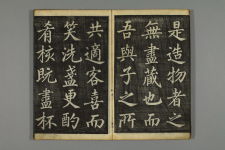 是造物者之
無盡藏也而
吾與子之所
共適客喜而
笑洗盞更酌
肴核既盡杯